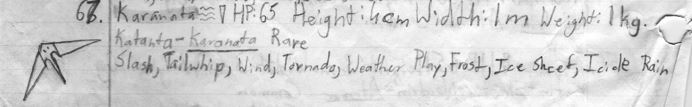 68. Karanata HP:65 Height:4cm Width:1m Weight:1kg.
Katanta-Karanata Rare
Slash, Tailwhip, Wind, Tornado, Weather Play, Frost, Ice Sheet, Icicle Rain